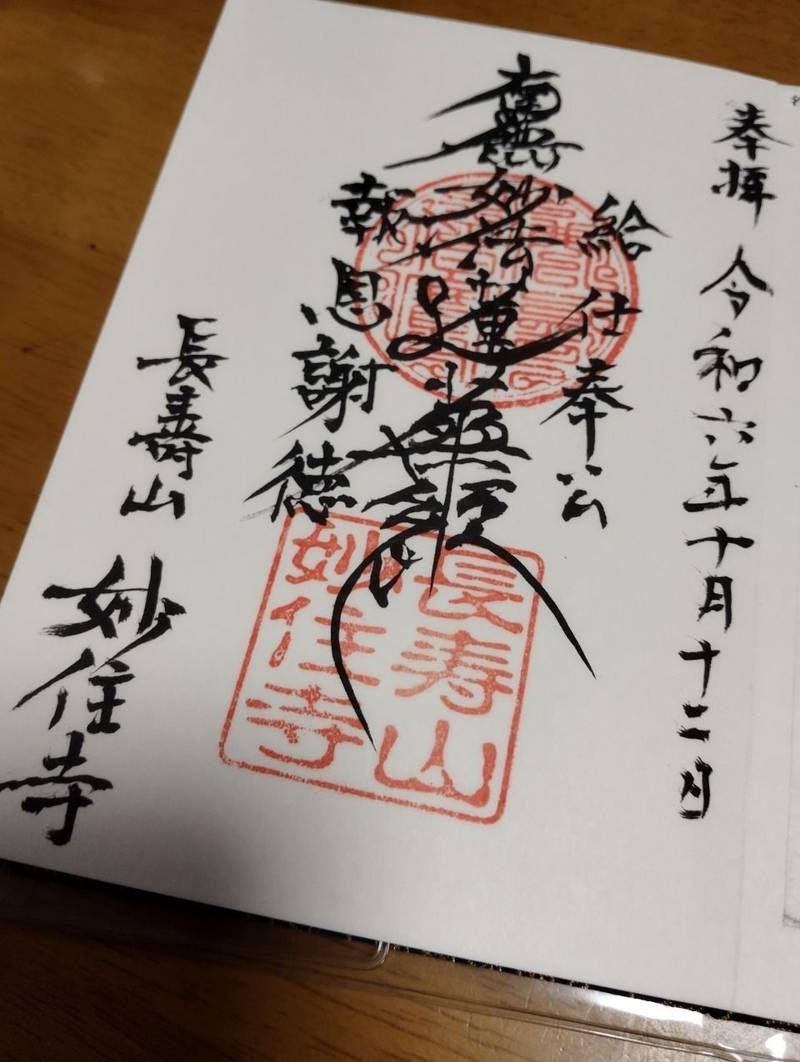 奉拝 令和六年十月十二日
給仕奉公
南無妙法蓮華経
報恩謝徳
長壽山
妙住寺
長寿山
妙住寺